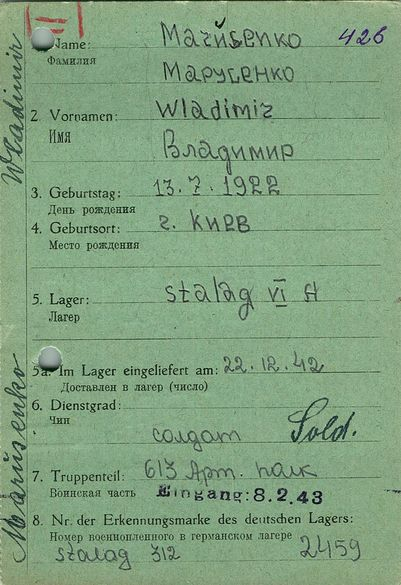 Name: Marüsenko 426
Фамилия Марусенко
2. Vornamen: Wladimir
Имя Владимир
3. Geburtstag: 13.7.1922
День рождения
4. Geburtsort: г. Киев
Место рождения
5. Lager: Stalag VI A
Лагерь
5a. Im Lager eingeliefert am: 22.12.42
Доставлен в лагерь (число)
6. Dienstgrad:
Чин
солдат Sold.
7. Truppenteil: 613 Арт. полк
Воинская часть Eingang: 8.2.43
8. Nr. der Erkennungsmarke des deutschen Lagers:
Номер военнопленного в германском лагере
Stalag 312 2459
Marüsenko Wladimir